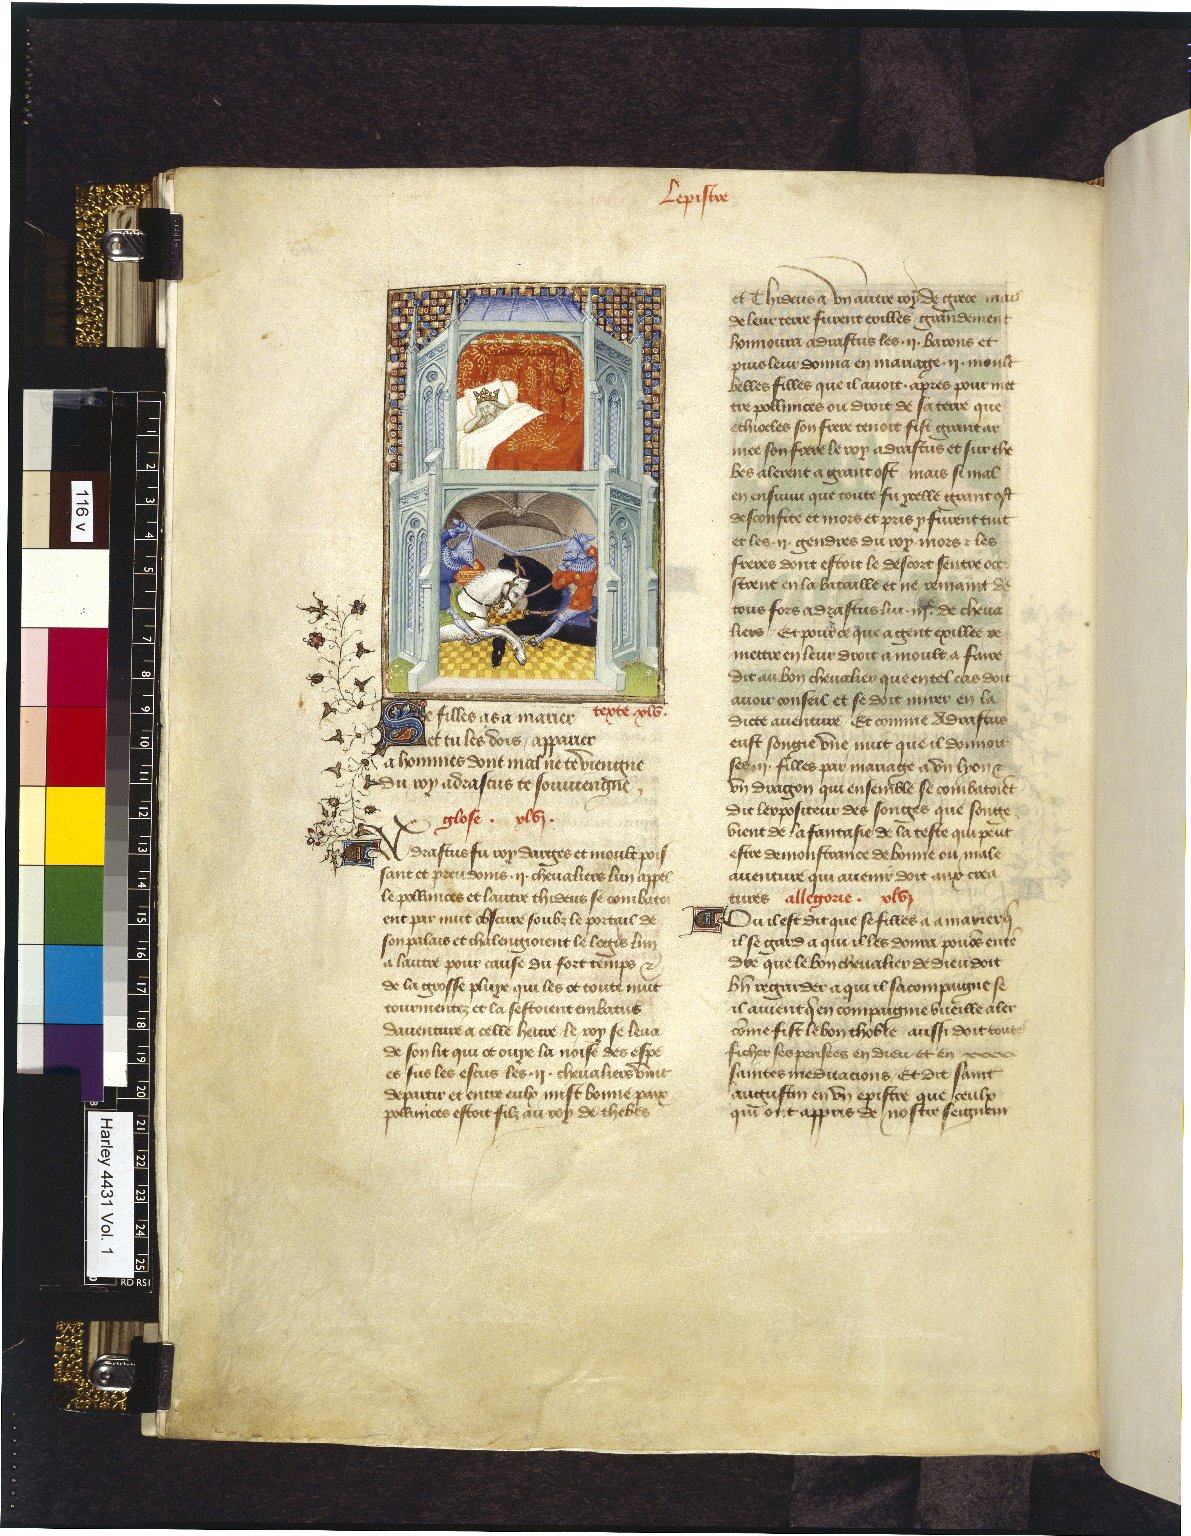 Lepistre
Se filles as a marier texte xlvi.
et tu les dois apparier
a hommes dont mal ne te viengne
Du roy adrastus te souviengne
glose . xlvi .
Adrastus fu roy darges et moult puis
sant et preudoms .ii. chevaliers lun appel
le pollinices et lautre thideus se combatoi
ent par nuit obscure soubz le portail de
son palais et chalengioient le logis lun
a lautre pour cause du fort temps et
de la grosse pluye qui les ot toute nuit
tourmentez et la sestoient embatus
daventure a celle heure le roy se leva
de son lit qui ot ouye la noise des espe
es sus les escus les .ii. chevaliers vint
departir et entre eulx mist bonne paix
pollinices estoit filz au roy de thebes
et Thideus a un autre roy de grece mais
de leur terre furent exilles grandement
honnoura adrastus les .ii. barons et
puis leur donna en mariage .ii. moult
belles filles que il avoit . apres pour met
tre pollinices ou droit de sa terre que
ethiocles son frere tenoit fist grant ar
mee son frere le roy adrastus et sur the
bes alerent a grant ost mais si mal
en ensuivi que toute fu ycelle grant ost
desconfite et mors et pris y furent tuit
et les .ii. gendres du roy mors et les
freres dont estoit le descort sentre occi
strent en la bataille et ne remaint de
tous fors adrastus lui .iii. de cheva
liers Et pour ce que a gent exillee re
mettre en leur droit a moult a faire
dit au bon chevalier que en tel cas doit
avoir conseil et se doit mirer en la
dicte aventure Et comme Adrastus
eust songie une nuit que il donnoit
ses .ii. filles par mariage a un lyon et
un dragon qui ensemble se combatoient
dit lexpositeur des songes que songe
vient de la fantasie de la teste qui peut
estre demonstrance de bonne ou male
aventure qui avenir doit aux crea
tures allegorie . xlvi
Ou il est dit que se filles a a marier q̃
il se gard a qui il les donra povõs entẽ
dre que le bon chevalier de dieu doit
bñ regarder a qui il sacompaigne se
il avient q̃ en compaignie vueille aler
cõme fist le bon thobie aussi doit toutes
ficher ses pensees en dieu et en
saintes meditacions Et dit saint
augustin en un epistre que ceulx
qui ont appris de nostre seigneur
116 v
Harley 4431 Vol. 1